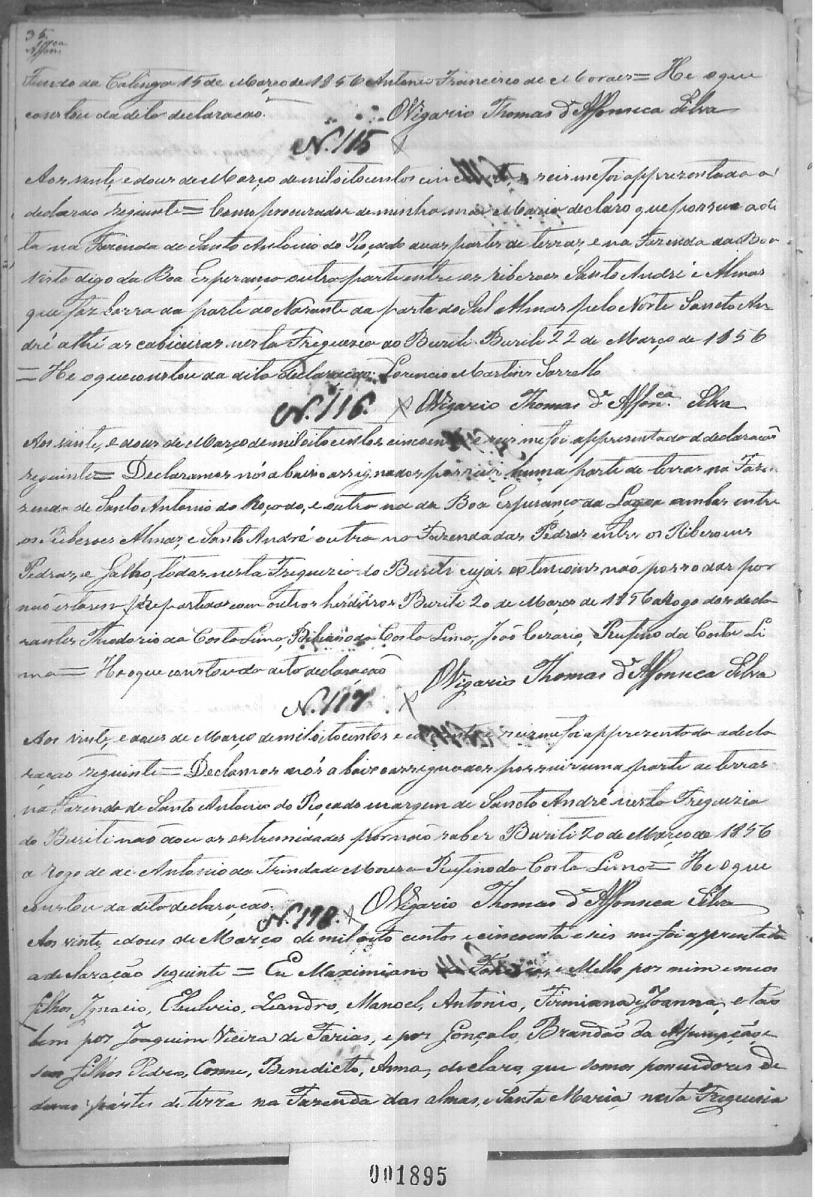 35
Affonca
Fundo da Catinga 15 de Março de 1856 Antonio Francisco de Moraes = He o que
constou da dita declaração. O Vigario Thomas d'Affonseca Silva
N. 115
Aos vinte, e dous de Março de mil oito centos cincoenta e seis me foi appresentada a
declarão seguinte = Como procurador de minha mai Maria declaro que possue a di
ta na Fazenda de Santo Antonio do Roçado duas partes de terras, e na Fazenda da Boa
vista digo da Boa Esperança outra parte entre os riberoes Santo André e Almas
que faz barra da parte do Nascente da parte do Sul Almas pelo Norte Sancto An
dré athé as cabiceiras nesta Freguezia do Buriti Buriti 22 de Março de 1856
= He o que constou da dita declaração. Lorencio Martins
N. 116. O Vigario Thomas d'Affonca Silva
Aos vinte, e dous de Março de mil oito centos cincoenta e seis me foi appresentado a declaração
seguinte = Declaramos nós abaixo assignados possuir huma parte de terras na Fa
zenda de Santo Antonio do Roçado, e outra na da Boa Esperança da Lagoa ambas entre
os Riberoes Almas, e Santo André outra na Fazenda das Pedras entre os Riberoens
Pedras, e Galho, todas nesta Freguezia do Buriti cujas extencoins não posso dar por
não estarem repartidas com outros herdeiros Buriti 20 de Março de 1856 a Rogo dos decla
rantes Theodorio da Costa Lima, da Costa Lima, João Cezario, Rufino da Costa Li
ma = He o que constou da dita declaração O Vigario Thomas d'Affonseca Silva
N. 117.
Aos vinte, e dous de Março de mil oito centos e cincoenta e seis me foi appresentado a decla
ração seguinte = Declamos nós abaixo assignados possuir uma parte de terras
na Fazenda de Santo Antonio do Roçado margem de Sancto André nesta Freguezia
do Buriti não dou as extrumidades por não saber Buriti 20 de Março de 1856
a rogo de Antonio da Trindade Rufino da Costa Lima = He o que
constou da dita declaração. O Vigario Thomas d'Affonseca Silva
N. 118.
Aos vinte e dous de Março de mil oito centos e cincoenta e seis me foi appresentada
a declaração seguinte = Eu Maximiano e Mello por mim e meos
filhos Ignacio, Leandro, Manoel, Antonio, Firmiana e Joanna, e tao
bem por Joaquim Vieira de Farias, e por Gonçalo Brandão da Assumpção, e
seos filhos Pedro, Cosme, Benedicto, Anna, declaro, que somos possuidores de
duas partes de terra na Fazenda das almas, e Santa Maria, nesta Freguesia
001895